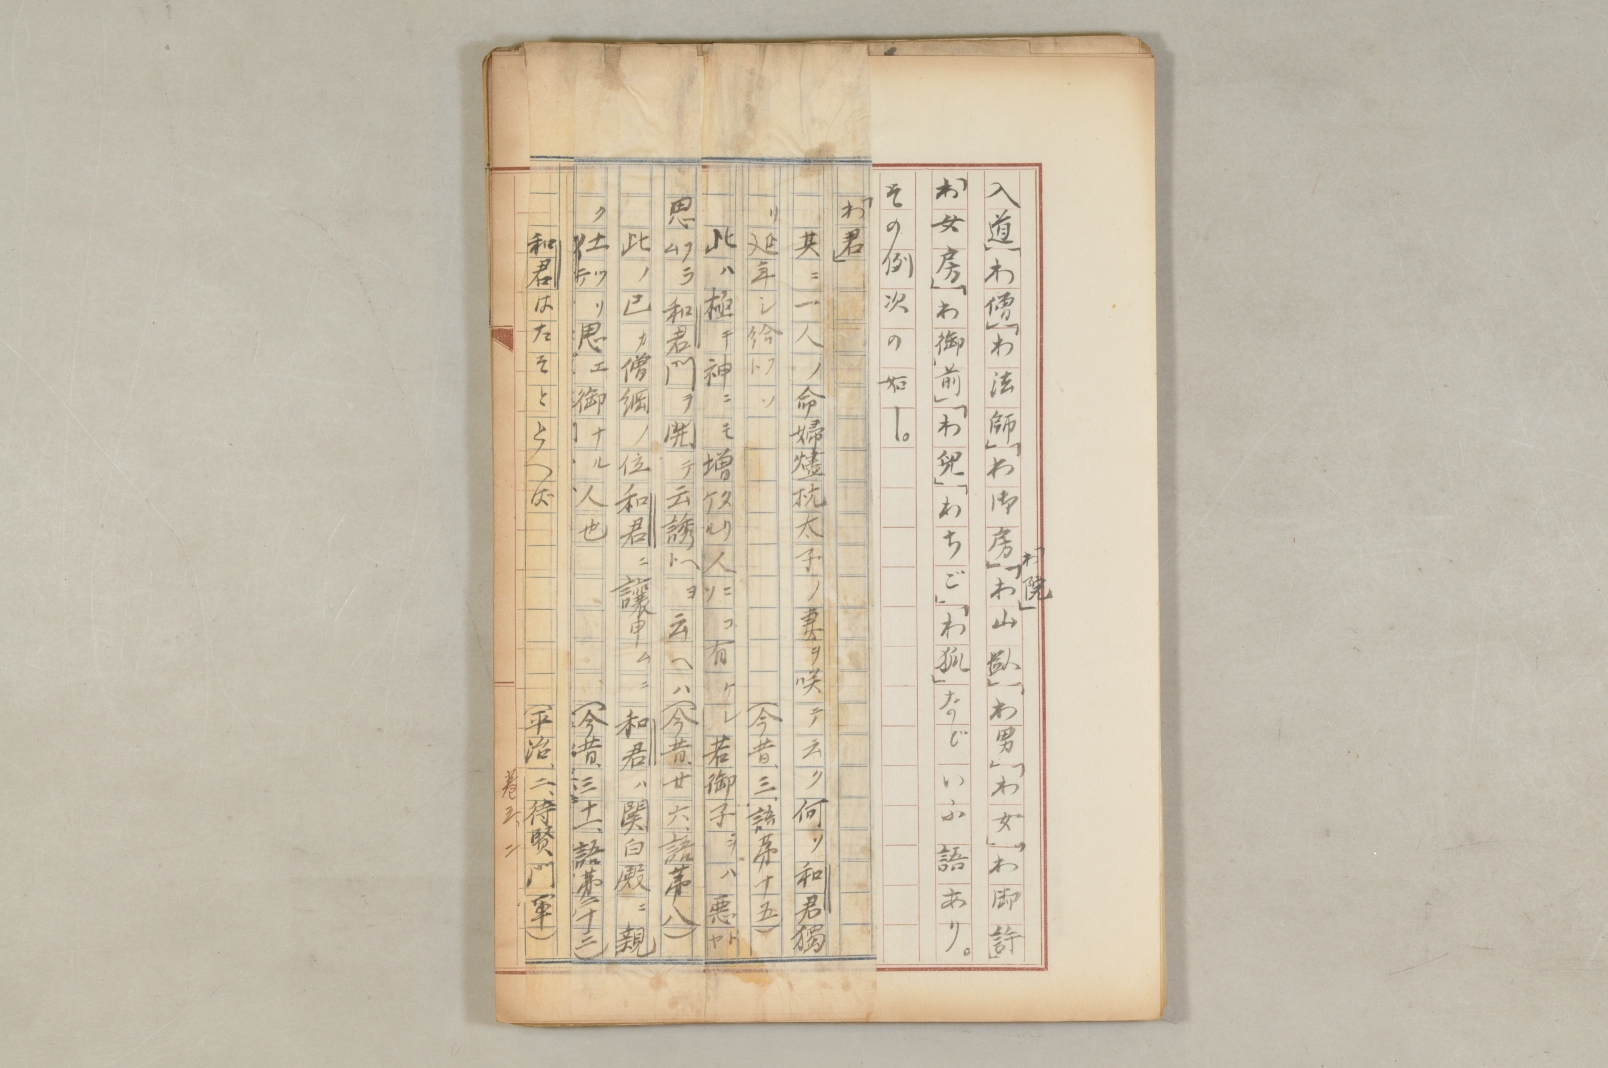 入道」「わ僧」「わ法師」「わ御房」「わ院」「わ山臥」「わ男」「わ女」「わ御許」
「わ女房」「わ御前」「わ兒」「わちご」「わ狐」などいふ語あり。
その例次の如し。
「わ君」
其ニ一人ノ命婦燼杭太子ノ妻ヲ咲テ云ク何ソ和君獨
リ延年シ給フトソ（今昔、三、語第十五）
此ハ極キ神ニモ增タリケル人ニコソ有ケレ若御子ヲハ悪トヤ
思ムヲラ和君門ヲ開テ云誘ヘトヨ云ヘハ（今昔、廿六、語第八）
此ノ已カ僧綱ノ位和君ニ讓申ムニ和君ハ関白殿ニ親
ク仕ツリ思エ御ナル人也（今昔、三十一、語第三十三）
和君はたそととへば（平治、二、待賢門軍）
巻三ノ二